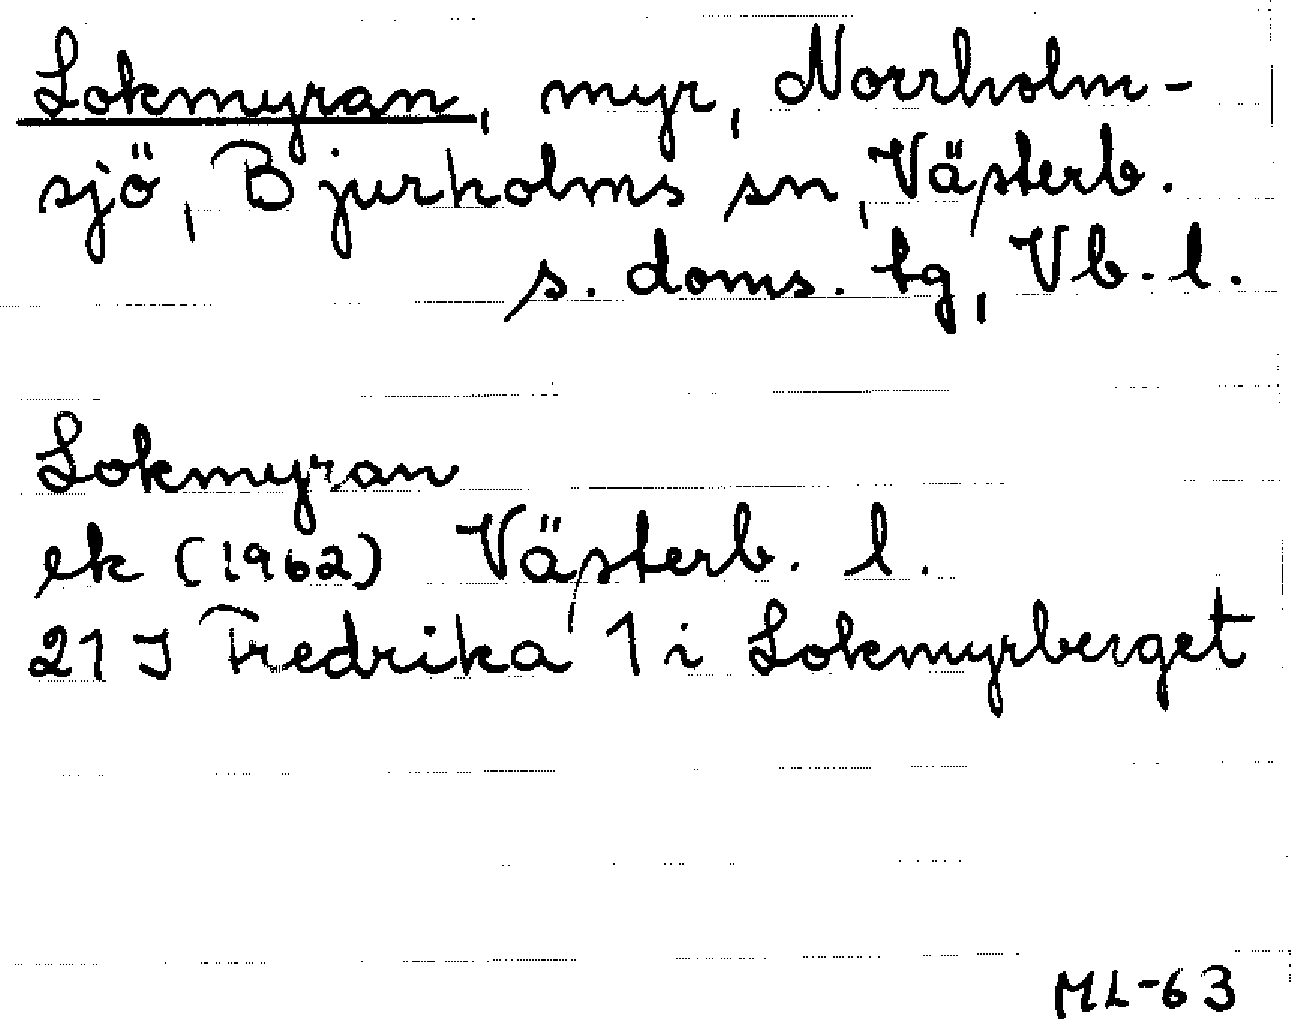 Lokmyran, myr, Norrholm-
sjö, Bjurholms sn, Västerb.
s. doms. tg, Vb. l.
Lokmyran
ek (1962) Västerb. l.
21 J Fredrika 1 i Lokmyrberget
ML-63